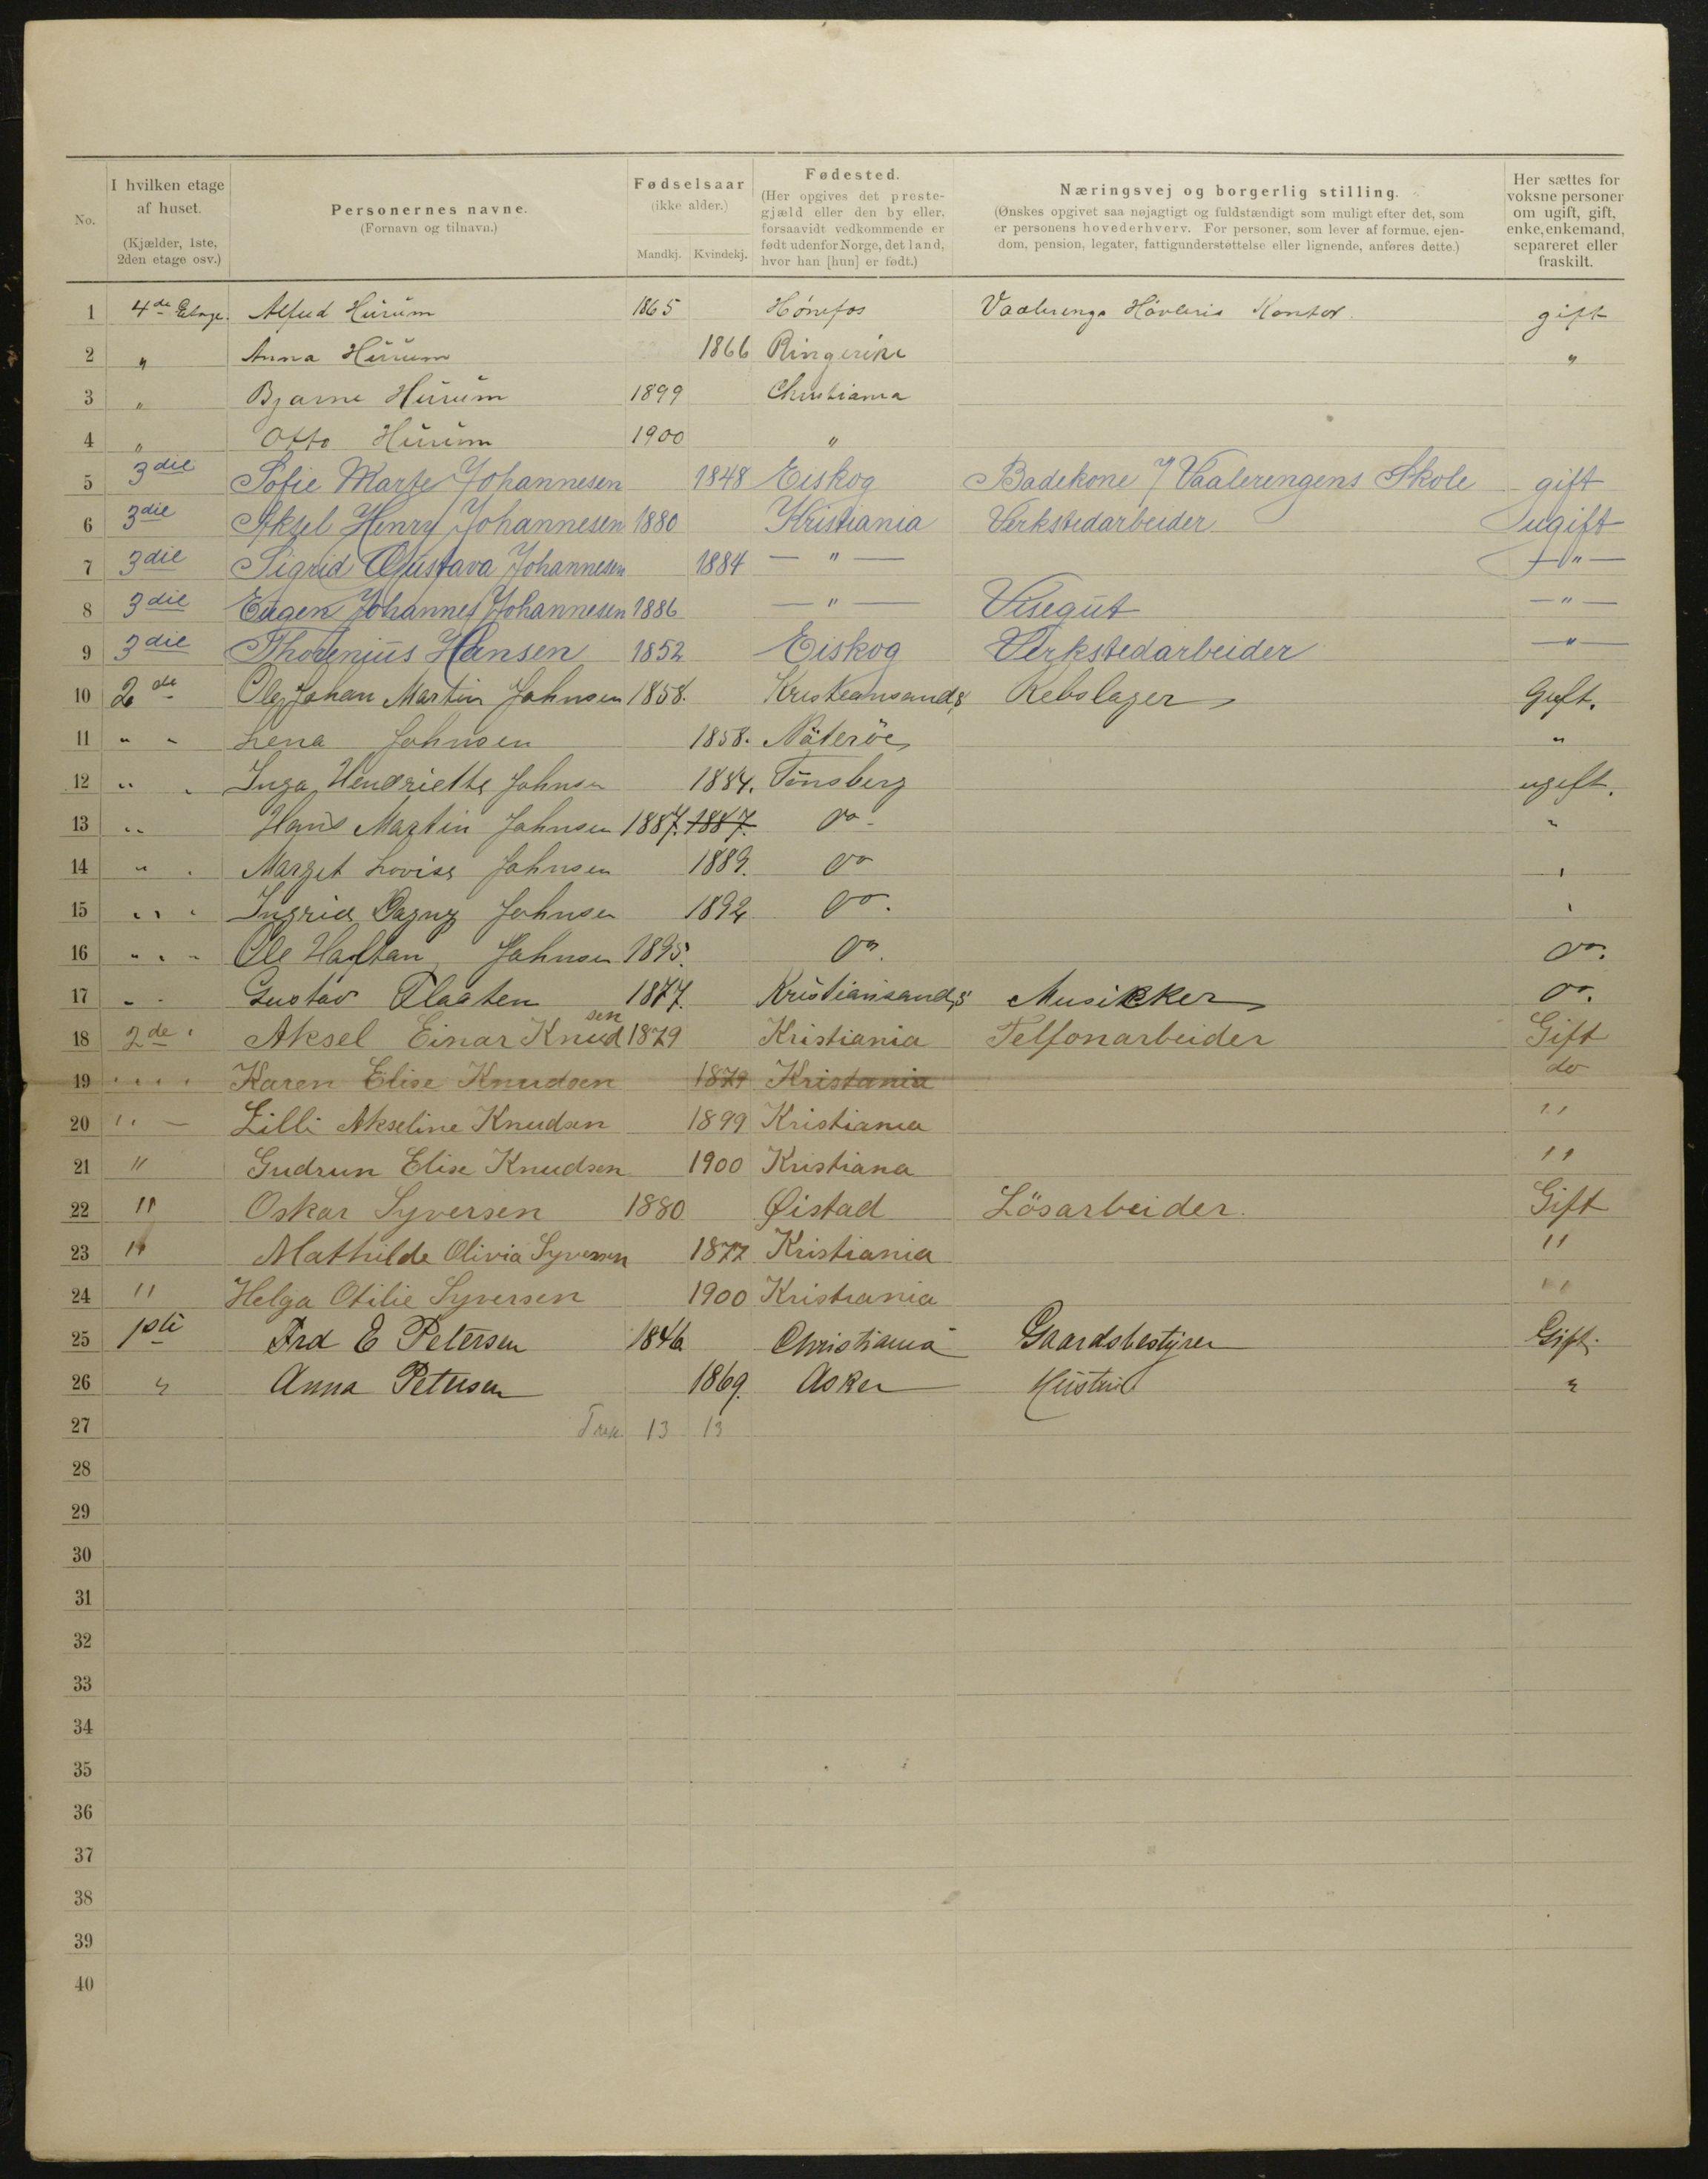 No.
I hvilken etage af huset. (Kjælder, 1ste, 2den etage osv.)
Personernes navne. (Fornavn og tilnavn.)
Fødselsaar (ikke alder.) Mandkj. Kvindekj.
Fødested. (Her opgives det prestegjæld eller den by eller, forsaavidt vedkommende er født udenfor Norge, det land, hvor han [hun] er født.)
Næringsvej og borgerlig stilling. (Ønskes opgivet saa nøjagtigt og fuldstændigt som muligt efter det, som er personens hovederhverv. For personer, som lever af formue, ejendom, pension, legater, fattigunderstøttelse eller lignende, anføres dette.)
Her sættes for voksne personer om ugift, gift, enke, enkemand, separeret eller fraskilt.
1 4de Etage. Alfred Hurum 1865 Hønefos Vaalerenga Høvleris Kontor. gift
2 " Anna Hurum 1866 Ringerike "
3 " Bjarne Hurum 1899 Christiania
4 " Otto Hurum 1900 "
5 3die Sofie Marte Johannesen 1848 Eiskog Badekone / Vaalerengens Skole gift
6 3die Aksel Henry Johannesen 1880 Kristiania Verkstedarbeider ugift
7 3die Sigrid Gustava Johannesen 1884 — " — — " —
8 3die Eugen Johannes Johannesen 1886 — " — Visegut — " —
9 3die Thorenius Hansen 1852 Eiskog Verkstedarbeider — " —
10 2de Ole Johan Martin Johnsen 1858. Kristeansands Rebslager Gift.
11 " " Lena Johnsen 1858. Nøterøe "
12 " " Inga Hendriette Johnsen 1884. Tønsberg ugift.
13 " Hans Martin Johnsen 1887. 1887. Do - "
14 " " Marget Lovise Johnsen 1889. Do "
15 " " " Ingrid Dagny Johnsen 1892 Do. "
16 " " " Ole Halftan Johnsen 1895. Do. Do.
17 " " Gustav Plaaten 1877. Kristiansands Musikker Do.
18 2de " Aksel Einar Knudsen 1879 Kristiania Telfonarbeider Gift
19 " " " " Karen Elise Knudsen 1879 Kristania do
20 " — Lilli Akseline Knudsen 1899 Kristiania "
21 " Gudrun Elise Knudsen 1900 Kristiana "
22 " Oskar Syversen 1880 Øistad Lösarbeider. Gift
23 " Mathilde Olivia Syversen 1877 Kristiania "
24 " Helga Otilie Syversen 1900 Kristiania "
25 1ste Frd E Petersen 1846 Christiania Gaardsbestyrer Gift.
26 " Anna Petersen 1869. Asker Hustru "
27 13 13
28
29
30
31
32
33
34
35
36
37
38
39
40